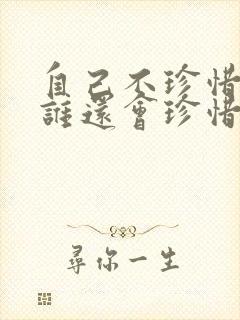 自己不珍惜
誰還會珍惜
尋你一生